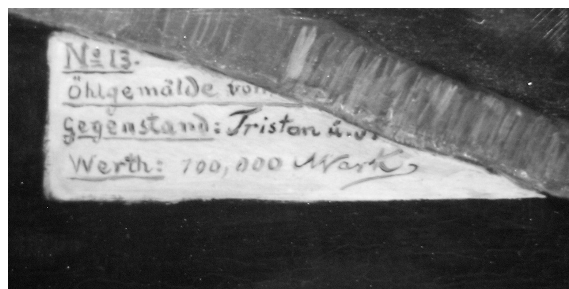 No 13.
Öhlgemälde von
Gegenstand: Tristan u.
Werth: 100,000 Mark